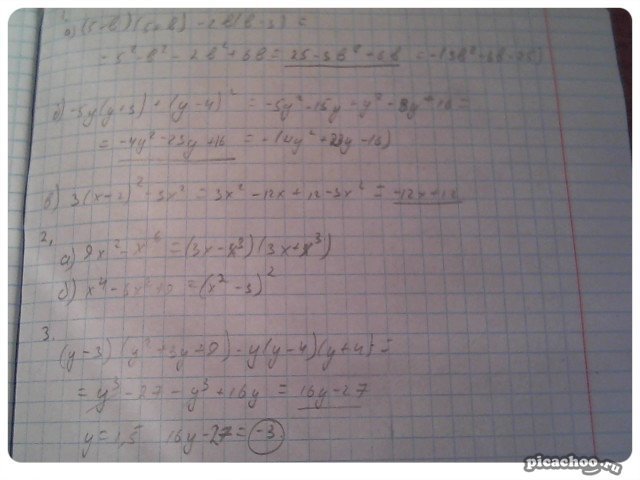 а) (5-в)(5+в) - 2в(в-3) =
- 5² - в² - 2в² + 6в = 25 - 3в² + 6в = -(3в² - 6в - 25)
б) -5y(y+3) + (y-4)² = -5y² - 15y + y² - 8y + 16 =
= -4y² - 23y + 16 = -(4y² + 23y - 16)
в) 3(x-2)² - 3x² = 3x² - 12x + 12 - 3x² = -12x + 12
2.
а) 9x² - x⁶ = (3x - x³)(3x + x³)
б) x⁴ - 6x² + 9 = (x² - 3)²
3.
(y-3)(y² + 3y + 9) - y(y-4)(y+4) =
= y³ - 27 - y³ + 16y = 16y - 27
y = 1,5 16y - 27 = -3
picachoo.ru